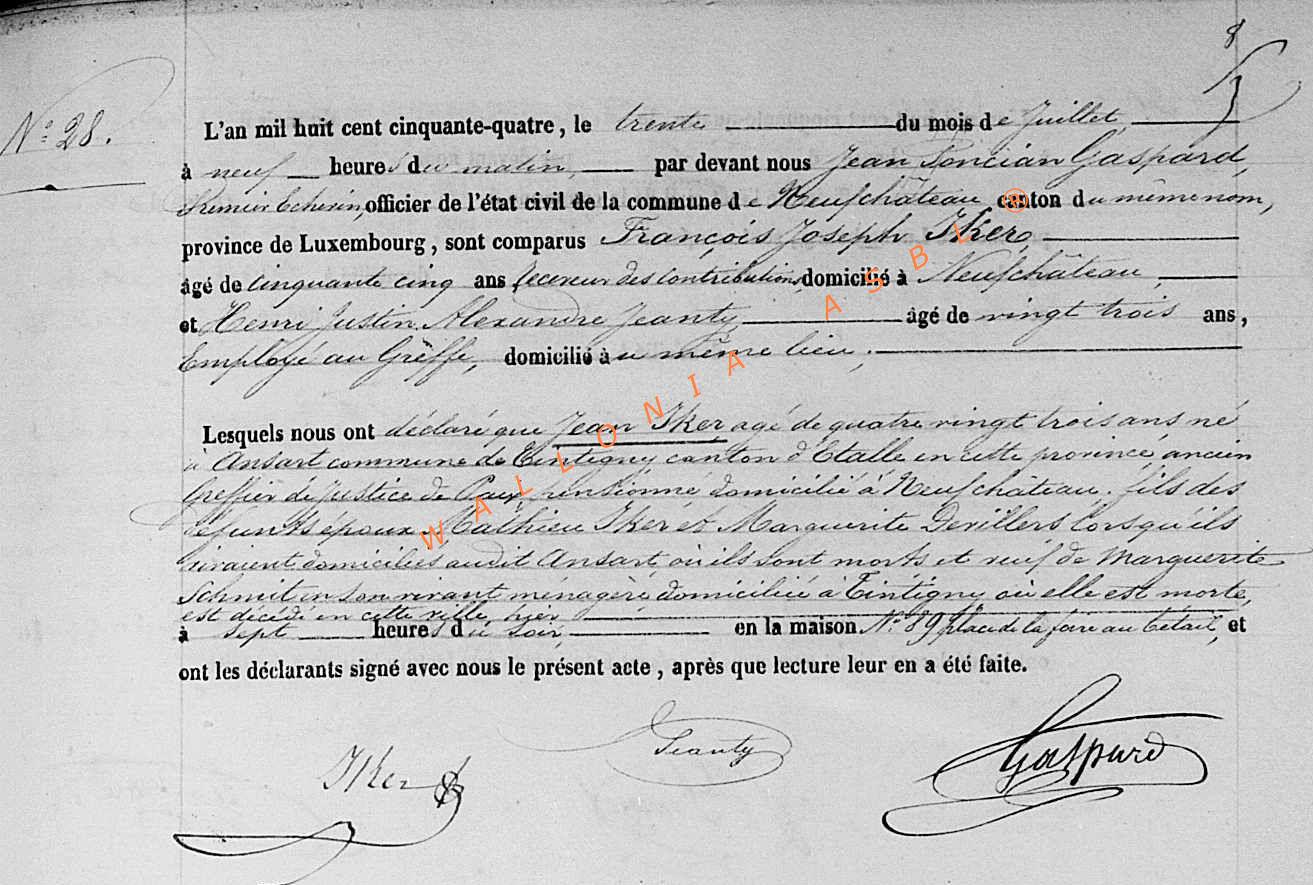 8
N° 28.
L'an mil huit cent cinquante-quatre, le trente du mois de Juillet
à neuf heures du matin, par devant nous Jean Poncian Gaspard,
Premier Echevin, officier de l'état civil de la commune de Neufchâteau canton du même nom,
province de Luxembourg, sont comparus François Joseph Iker,
âgé de cinquante cinq ans receveur des contributions, domicilié à Neufchâteau,
et Henri Justin Alexandre Jeanty, âgé de vingt trois ans,
Employé au Greffe, domicilié au même lieu;
Lesquels nous ont déclaré que Jean Iker agé de quatre vingt trois ans né
à Ansart commune de Tintigny canton d'Etalle en cette province, ancien
Greffier de Justice de Paix, pensionné domicilié à Neufchâteau. fils des
défunts époux Mathieu Iker et Marguerite Devillers lorsqu'ils
vivaient domiciliés audit Ansart où ils sont morts et veuf de Marguerite
Schmit en son vivant ménagère domiciliée à Tintigny où elle est morte,
est décédé en cette ville, hier
à sept heures du soir, en la maison N° 89 place de la foire au bétail, et
ont les déclarants signé avec nous le présent acte, après que lecture leur en a été faite.
Iker
Jeanty
Gaspard
WALLONIA ASBL ®